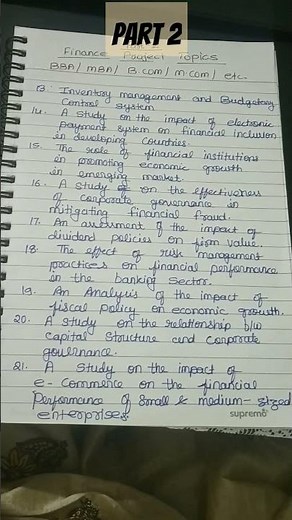 PART 2
Finance Project Topics
BBA/ MBA/ B.com/ m.com/ etc.
13. Inventory management and Budgetary
Control system
14. A study on the impact of electronic
payment system on financial inclusion
in developing countries.
15. The role of financial institutions
in promoting economic growth
in emerging market.
16. A study on the effectiveness
of corporate governance in
mitigating financial fraud.
17. An assessment of the impact of
dividend policies on firm value.
18. The effect of risk management
practices on financial performance
in the banking sector.
19. An Analysis of the impact of
fiscal policy on economic growth.
20. A study on the relationship b/w
capital structure and corporate
governance.
21. A study on the impact of
e-commerce on the financial
performance of small & medium-sized
enterprises
supremo